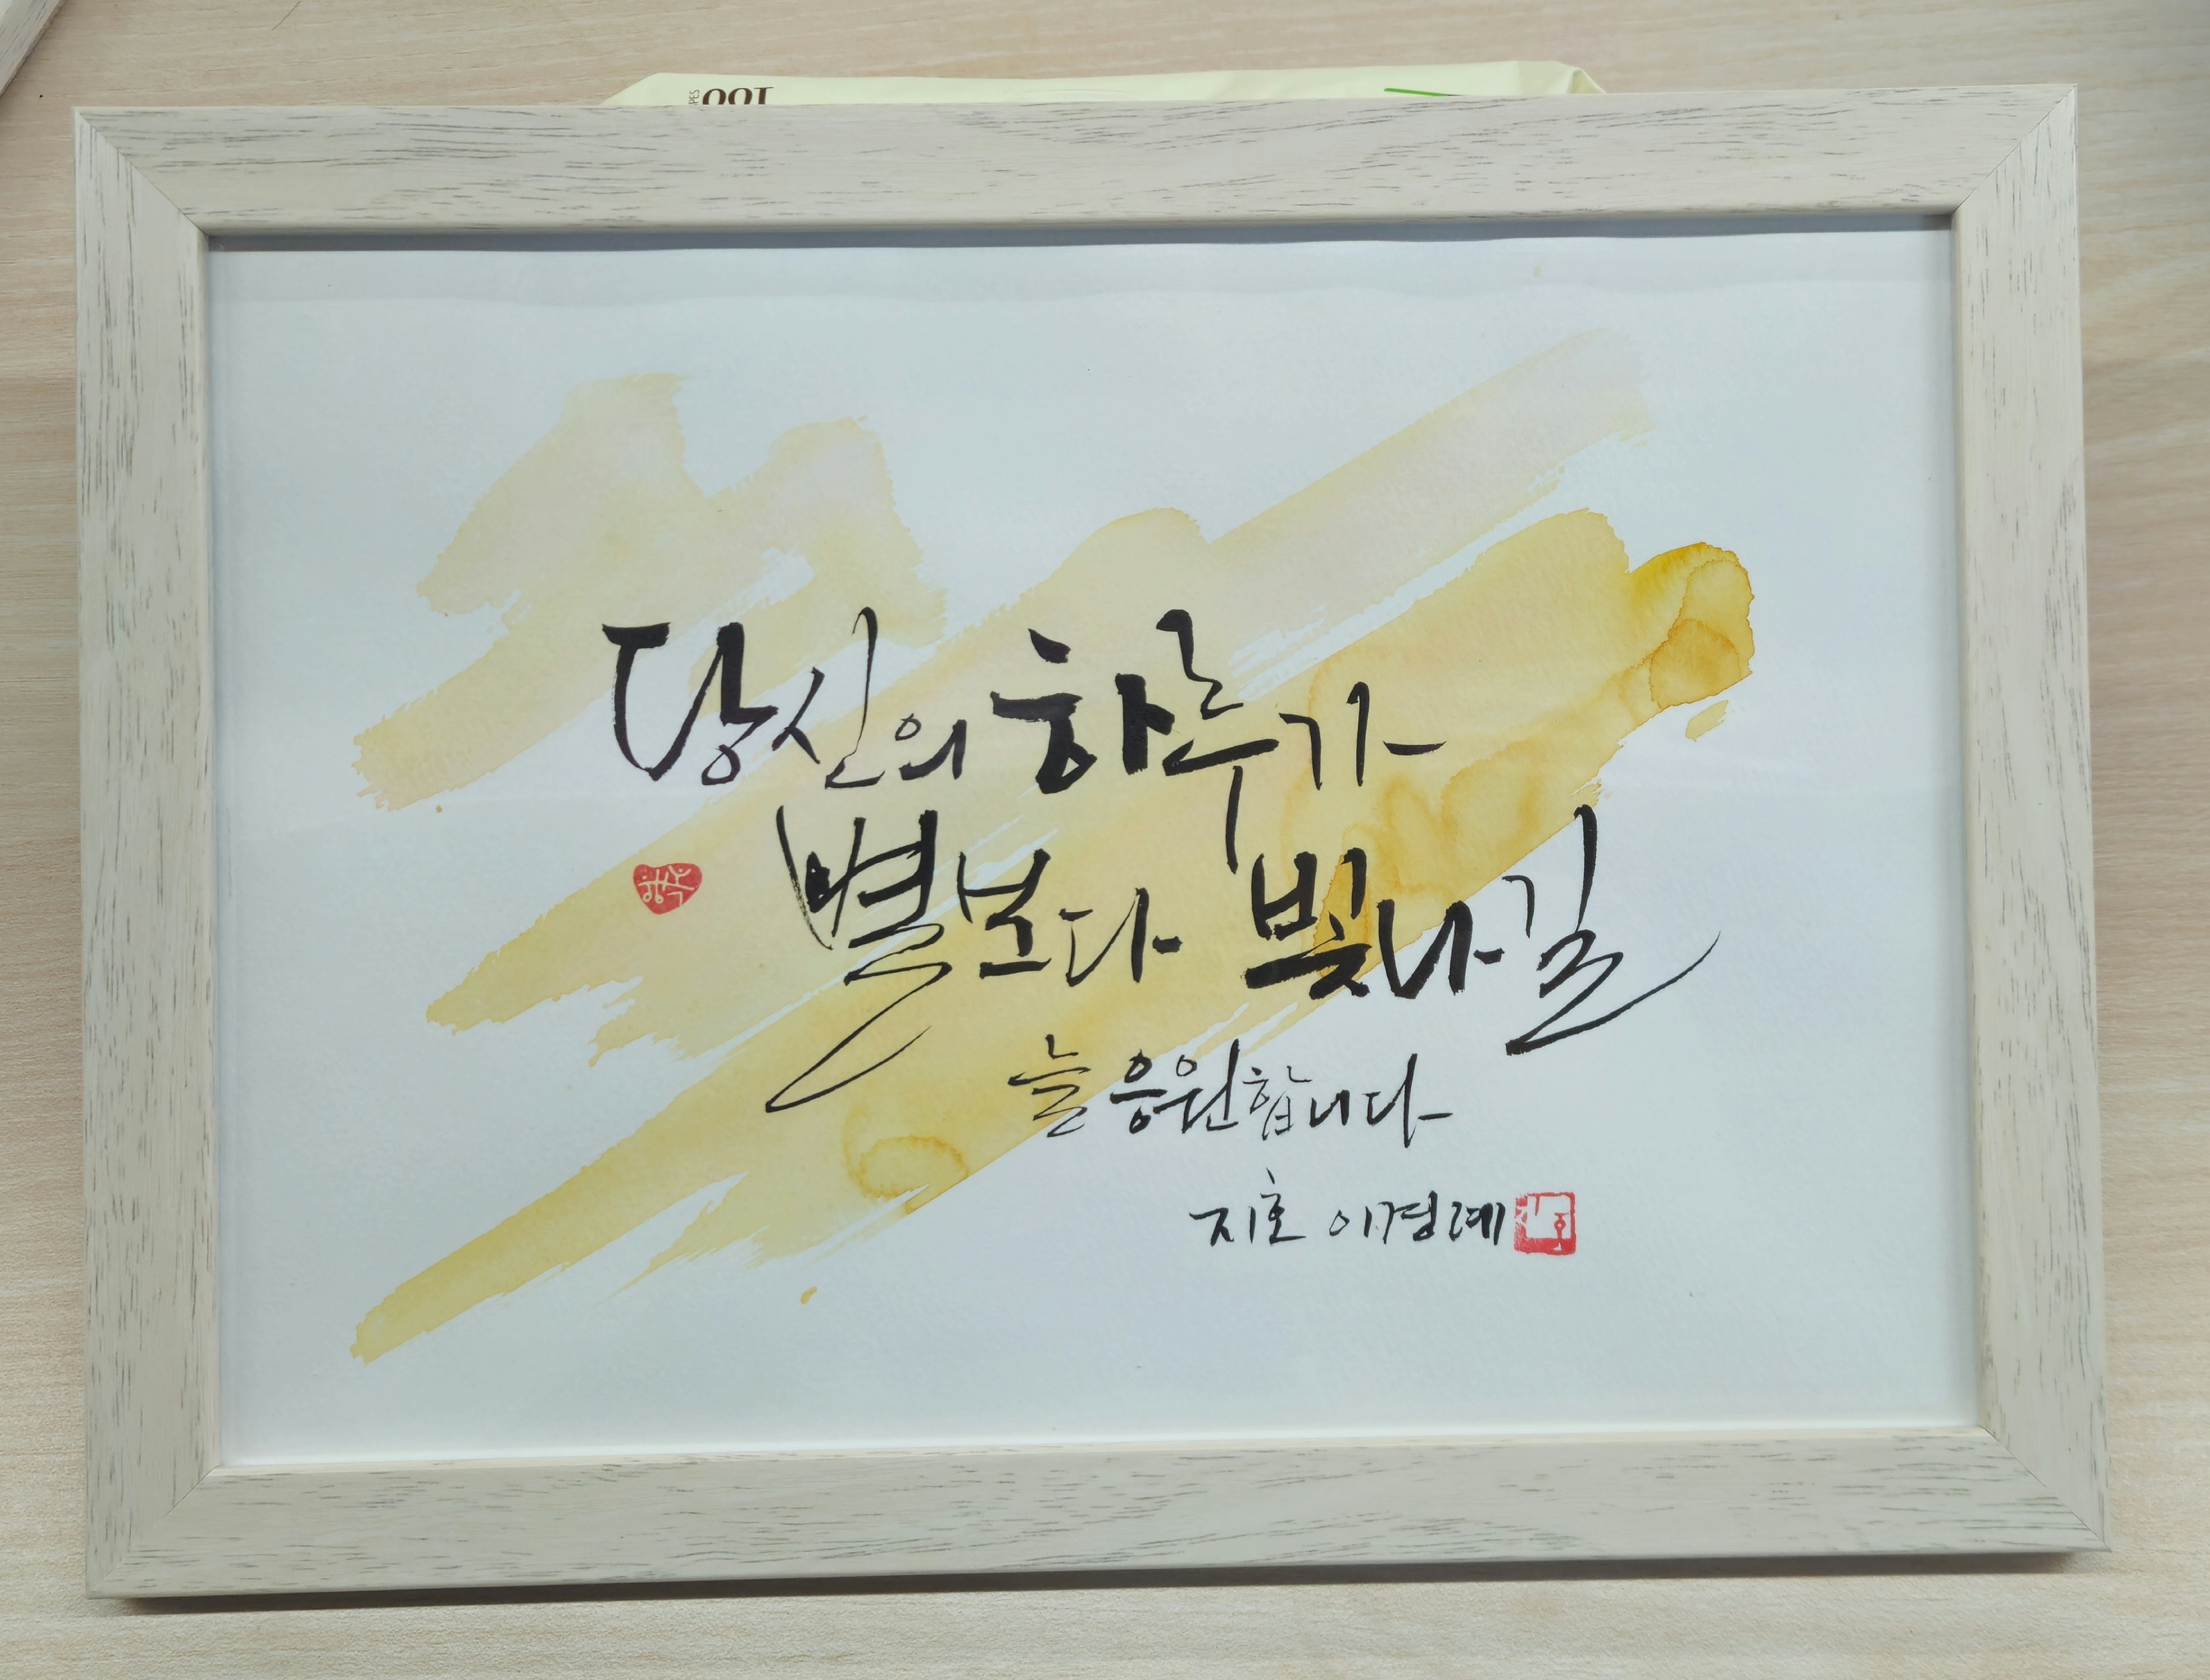 100
당신의 하루가
별보다 빛나길
늘 응원합니다
지호 이경례
지호